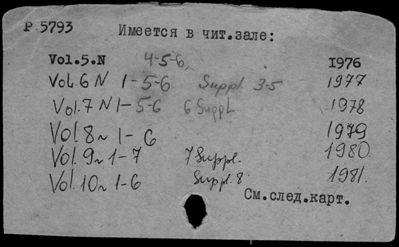 P 5793
Имеется в чит.зале:
Vol.5.N 4-5-6, 1976
Vol. 6 N 1-5-6 Suppl 3-5 1977
Vol. 7 N 1-5-6 6 Suppl 1978
Vol 8~ 1-6 1979
Vol. 9~ 1-7 7 Suppl. 1980
Vol. 10~ 1-6 Suppl. 8 1981.
См.след.карт.